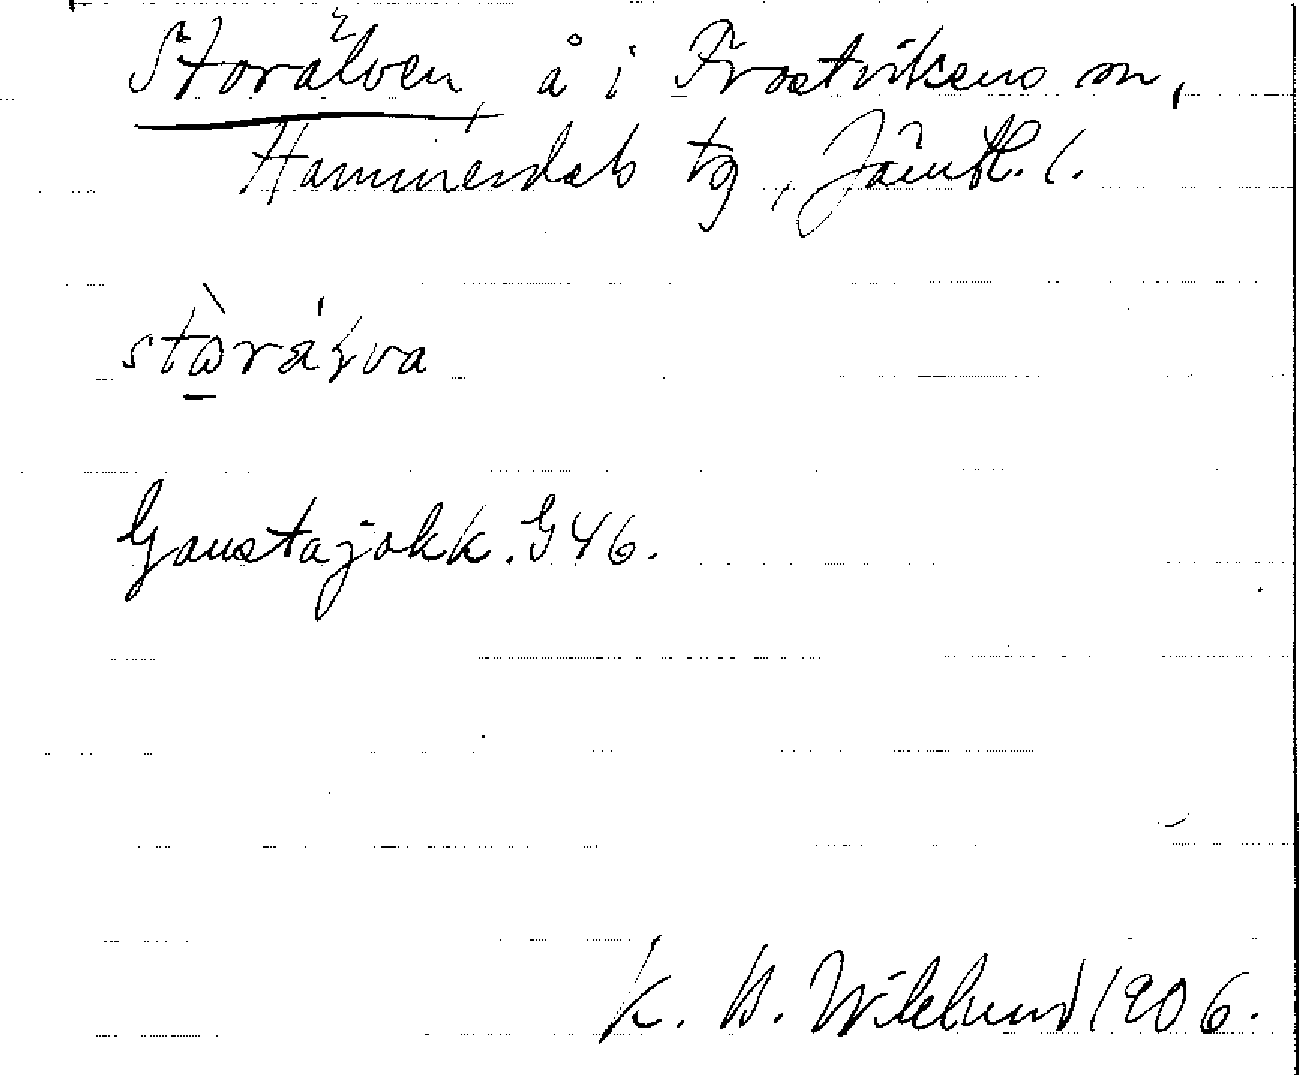 Storälven, å i Frostvikens sn,
Hammerdals tg, Jämtl. l.
Gaustajokk. G46.
K. B. Wiklund 1906.